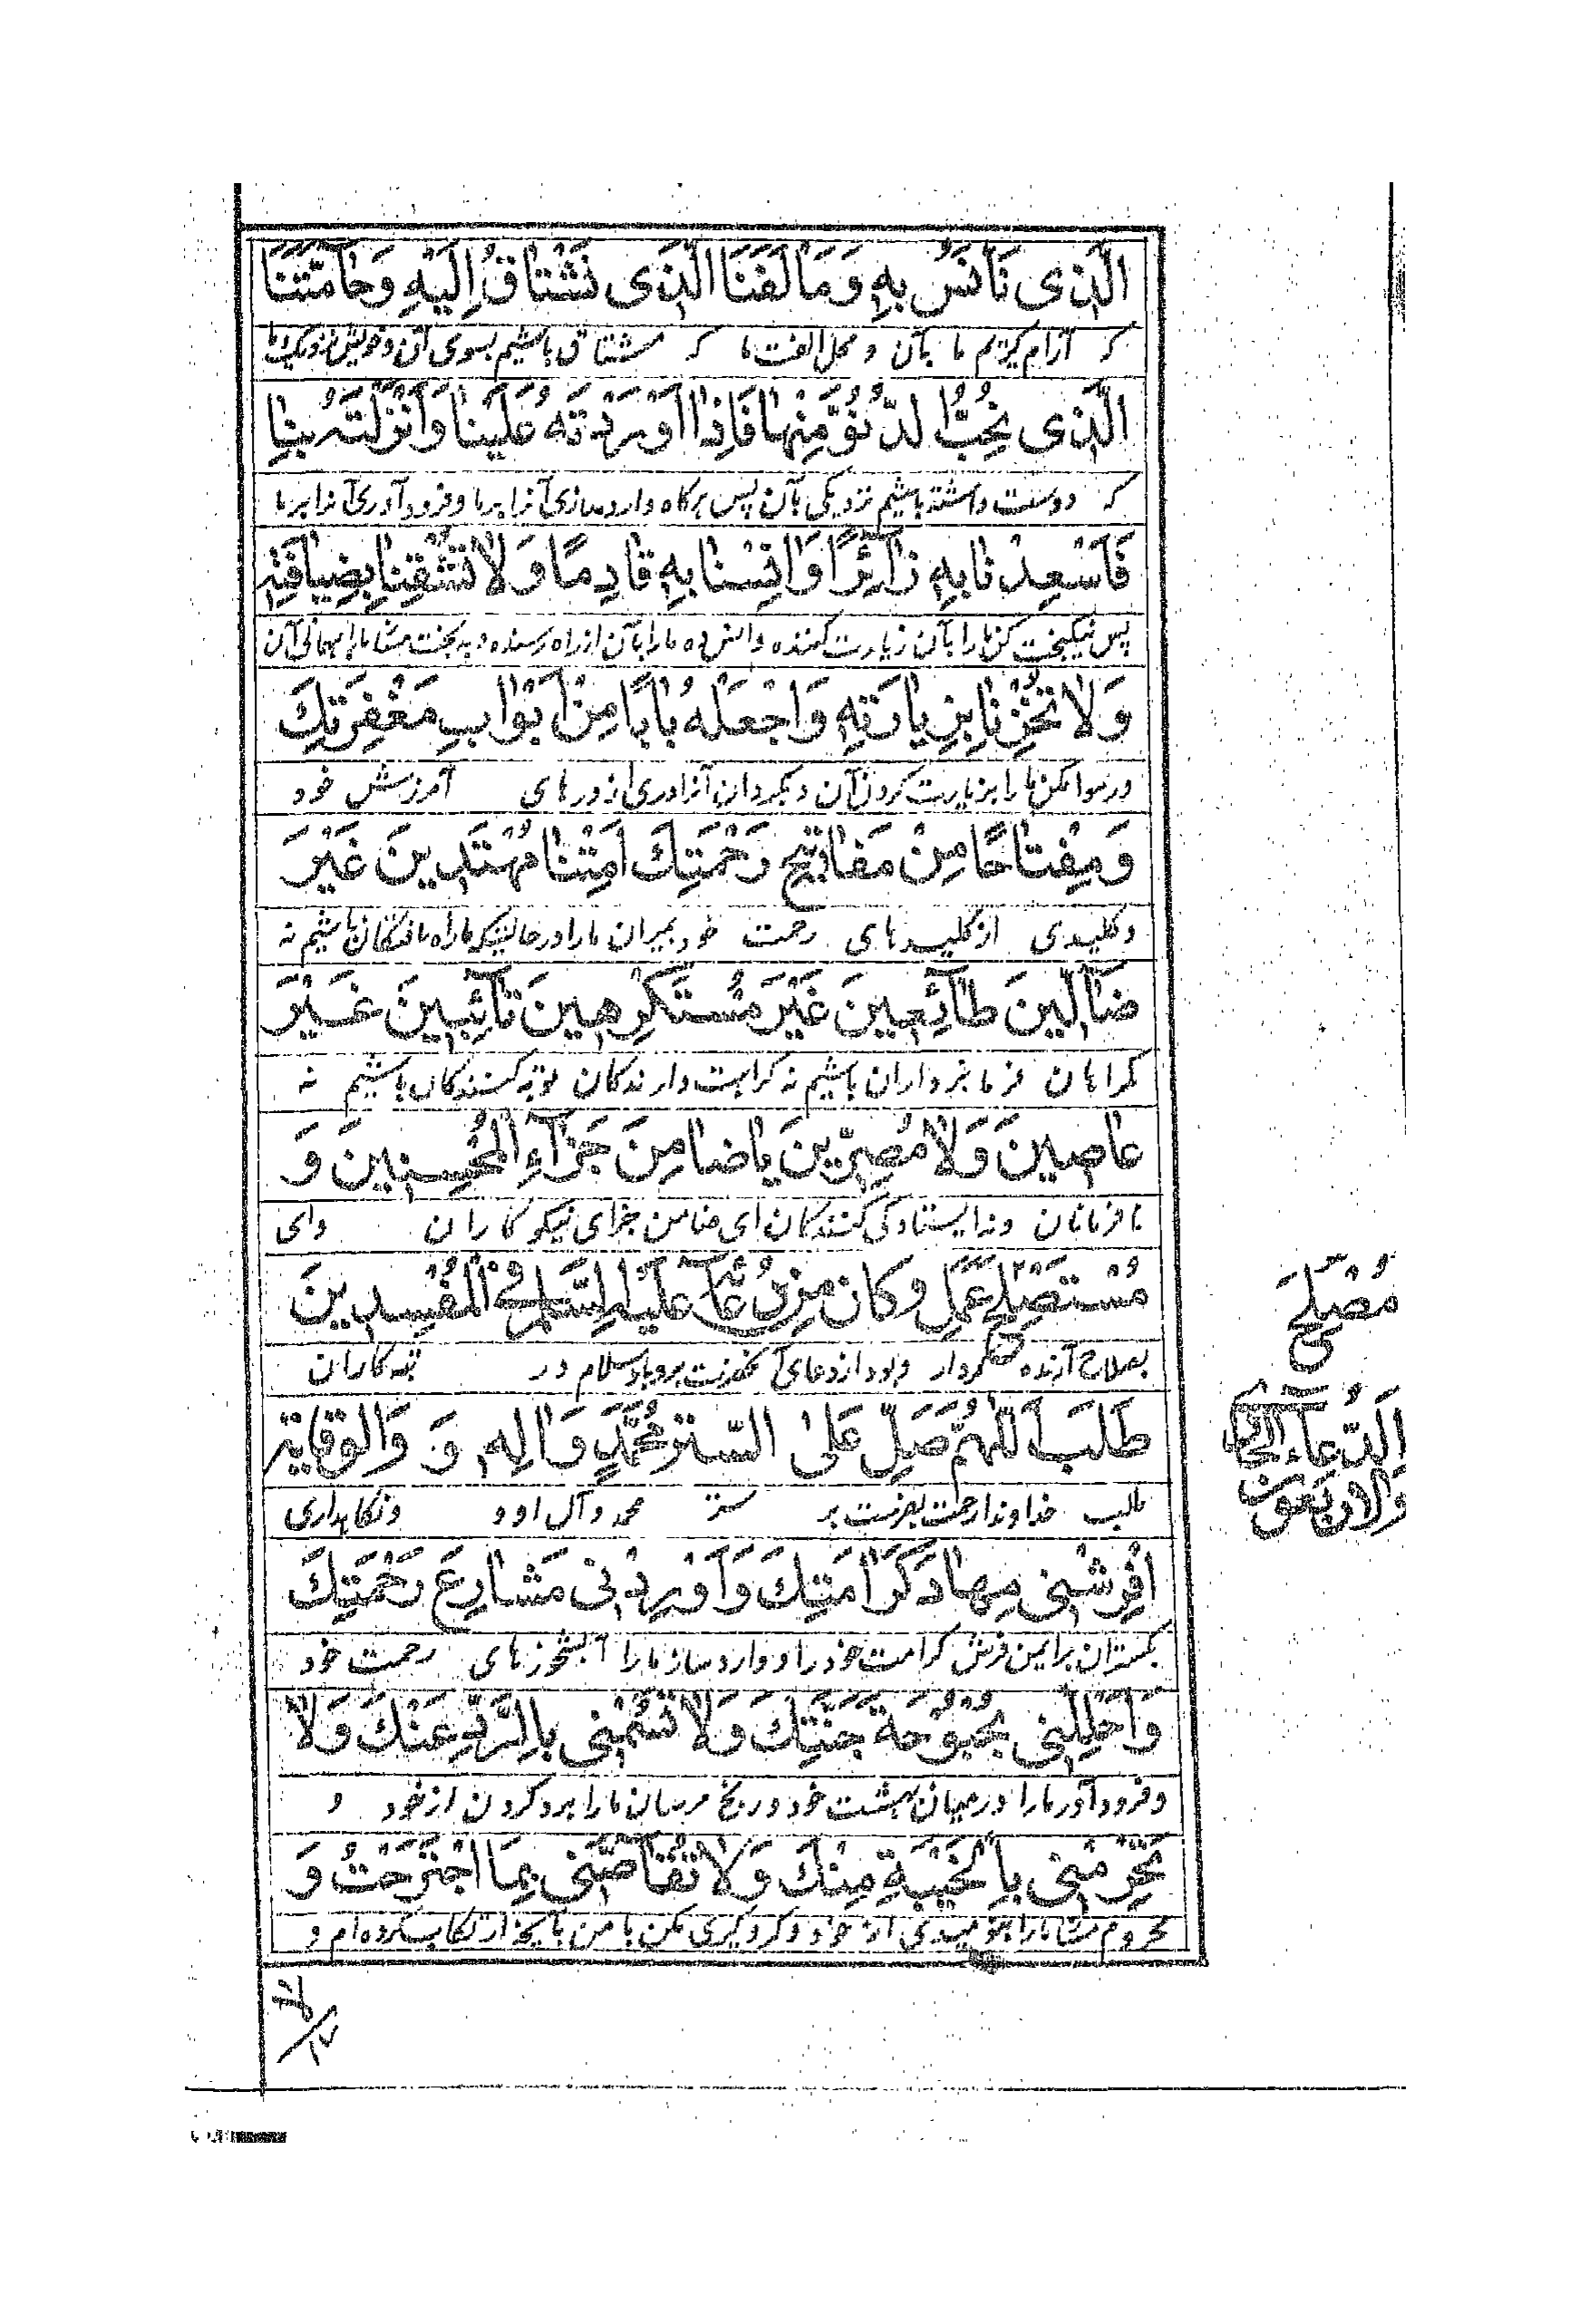 الَّذى نَأنَسُ بِهِ وَمَألَفَنَا الَّذى نَشْتاقُ إِلَيْهِ وَحامَّتَنَا
که آرام گیریم ما بآن و محل الفت ما که مشتاق باشیم بسوی آن و خویش نزدیک ما
الَّذى نُحِبُّ الدُّنُوَّ مِنْها فَاِذا اَوْرَدْتَهُ عَلَيْنا وَاَنْزَلْتَهُ بِنا
که دوست داشته باشیم نزدیکی بآن پس هرگاه وارد سازی آنرا بر ما و فرود آوری آنرا بر ما
فَاَسْعِدْنا بِهِ زآئِرًا وَانِسْنا بِهِ قادِمًا وَلا تُشْقِنا بِضِيافَتِهِ
پس نیکبخت کن ما را بآن زیارت کننده و انس ده ما را بآن از راه رسنده و بدبخت مکن ما را بمهمانی آن
وَلا تُخْزِنا بِزِيارَتِهِ وَاجْعَلْهُ بابًا مِنْ اَبْوابِ مَغْفِرَتِكَ
و رسوا مکن ما را بزیارت کردن آن و بگردان آنرا دری از درهای آمرزش خود
وَمِفْتاحًا مِنْ مَفاتيحِ رَحْمَتِكَ اَمِتْنا مُهْتَدينَ غَيْرَ
و کلیدی از کلیدهای رحمت خود بمیران ما را در حالتیکه ما راه یافتگان باشیم نه
ضآلّينَ طآئِعينَ غَيْرَ مُسْتَكْرِهينَ تآئِبينَ غَيْرَ
گمراهان فرمانبرداران باشیم نه کراهت دارندگان توبه کنندگان باشیم نه
عاصينَ وَلا مُصِرّينَ يا ضامِنَ جَزآءِ الْمُحْسِنينَ وَ
نافرمانان و نه ایستادگی کنندگان ای ضامن جزای نیکوکاران و ای
مُسْتَصْلِحَ عَمَلِ وكان مِن دُعآئه عليه السَّلام فى الْمُفْسِدينَ
بصلاح آرنده کردار و بود از دعای آنحضرت بر او باد سلام در تبه کاران
مُصْلِحَ
طَلَبِ اَللّهُمَّ صَلِّ عَلى السّتر مُحَمَّدٍ وَالِهِ وَ وَالوقاية
طلب خداوندا رحمت بفرست بر ستر محمد و آل او و و نگاهداری
اَلدُّعاء الحادى
وَالاربعون
اَفْرِشْنى مِهادَ كَرامَتِكَ وَاَوْرِدْنى مَشارِعَ رَحْمَتِكَ
بگستران برای من فرش کرامت خود را و وارد ساز ما را آبشخورهای رحمت خود
وَاَحْلِلْنى بُحْبُوحَةَ جَنَّتِكَ وَلا تَسُمْنى بِالرَّدِّ عَنْكَ وَلا
و فرود آور ما را در میان بهشت خود و رنج مرسان ما را برد کردن از خود و
تَحْرِمْنى بِالْخَيْبَةِ مِنْكَ وَلا تُقآصَّنى بِمَا اجْتَرَحْتُ وَ
محروم مساز ما را بنومیدی از خود و گروگیری مکن با من بآنچه ارتکاب کرده ام و